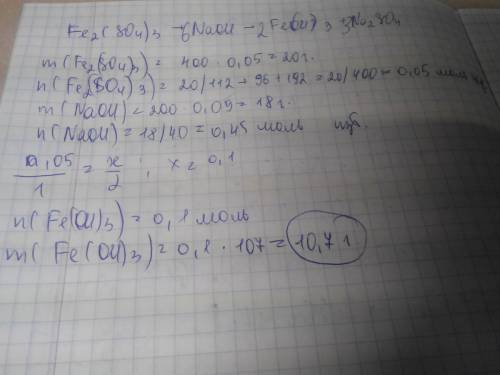 Fe2(SO4)3 - 6NaOH - 2Fe(OH)3 3Na2SO4
m(Fe2(SO4)3) = 400 · 0,05 = 20 г.
n(Fe2(SO4)3) = 20/112 + 96 + 192 = 20/400 = 0,05 моль
m(NaOH) = 200 · 0,09 = 18 г.
n(NaOH) = 18/40 = 0,45 моль изб.
0,05/1 = x/2 ; x = 0,1
n(Fe(OH)3) = 0,1 моль
m(Fe(OH)3) = 0,1 · 107 = 10,7 г